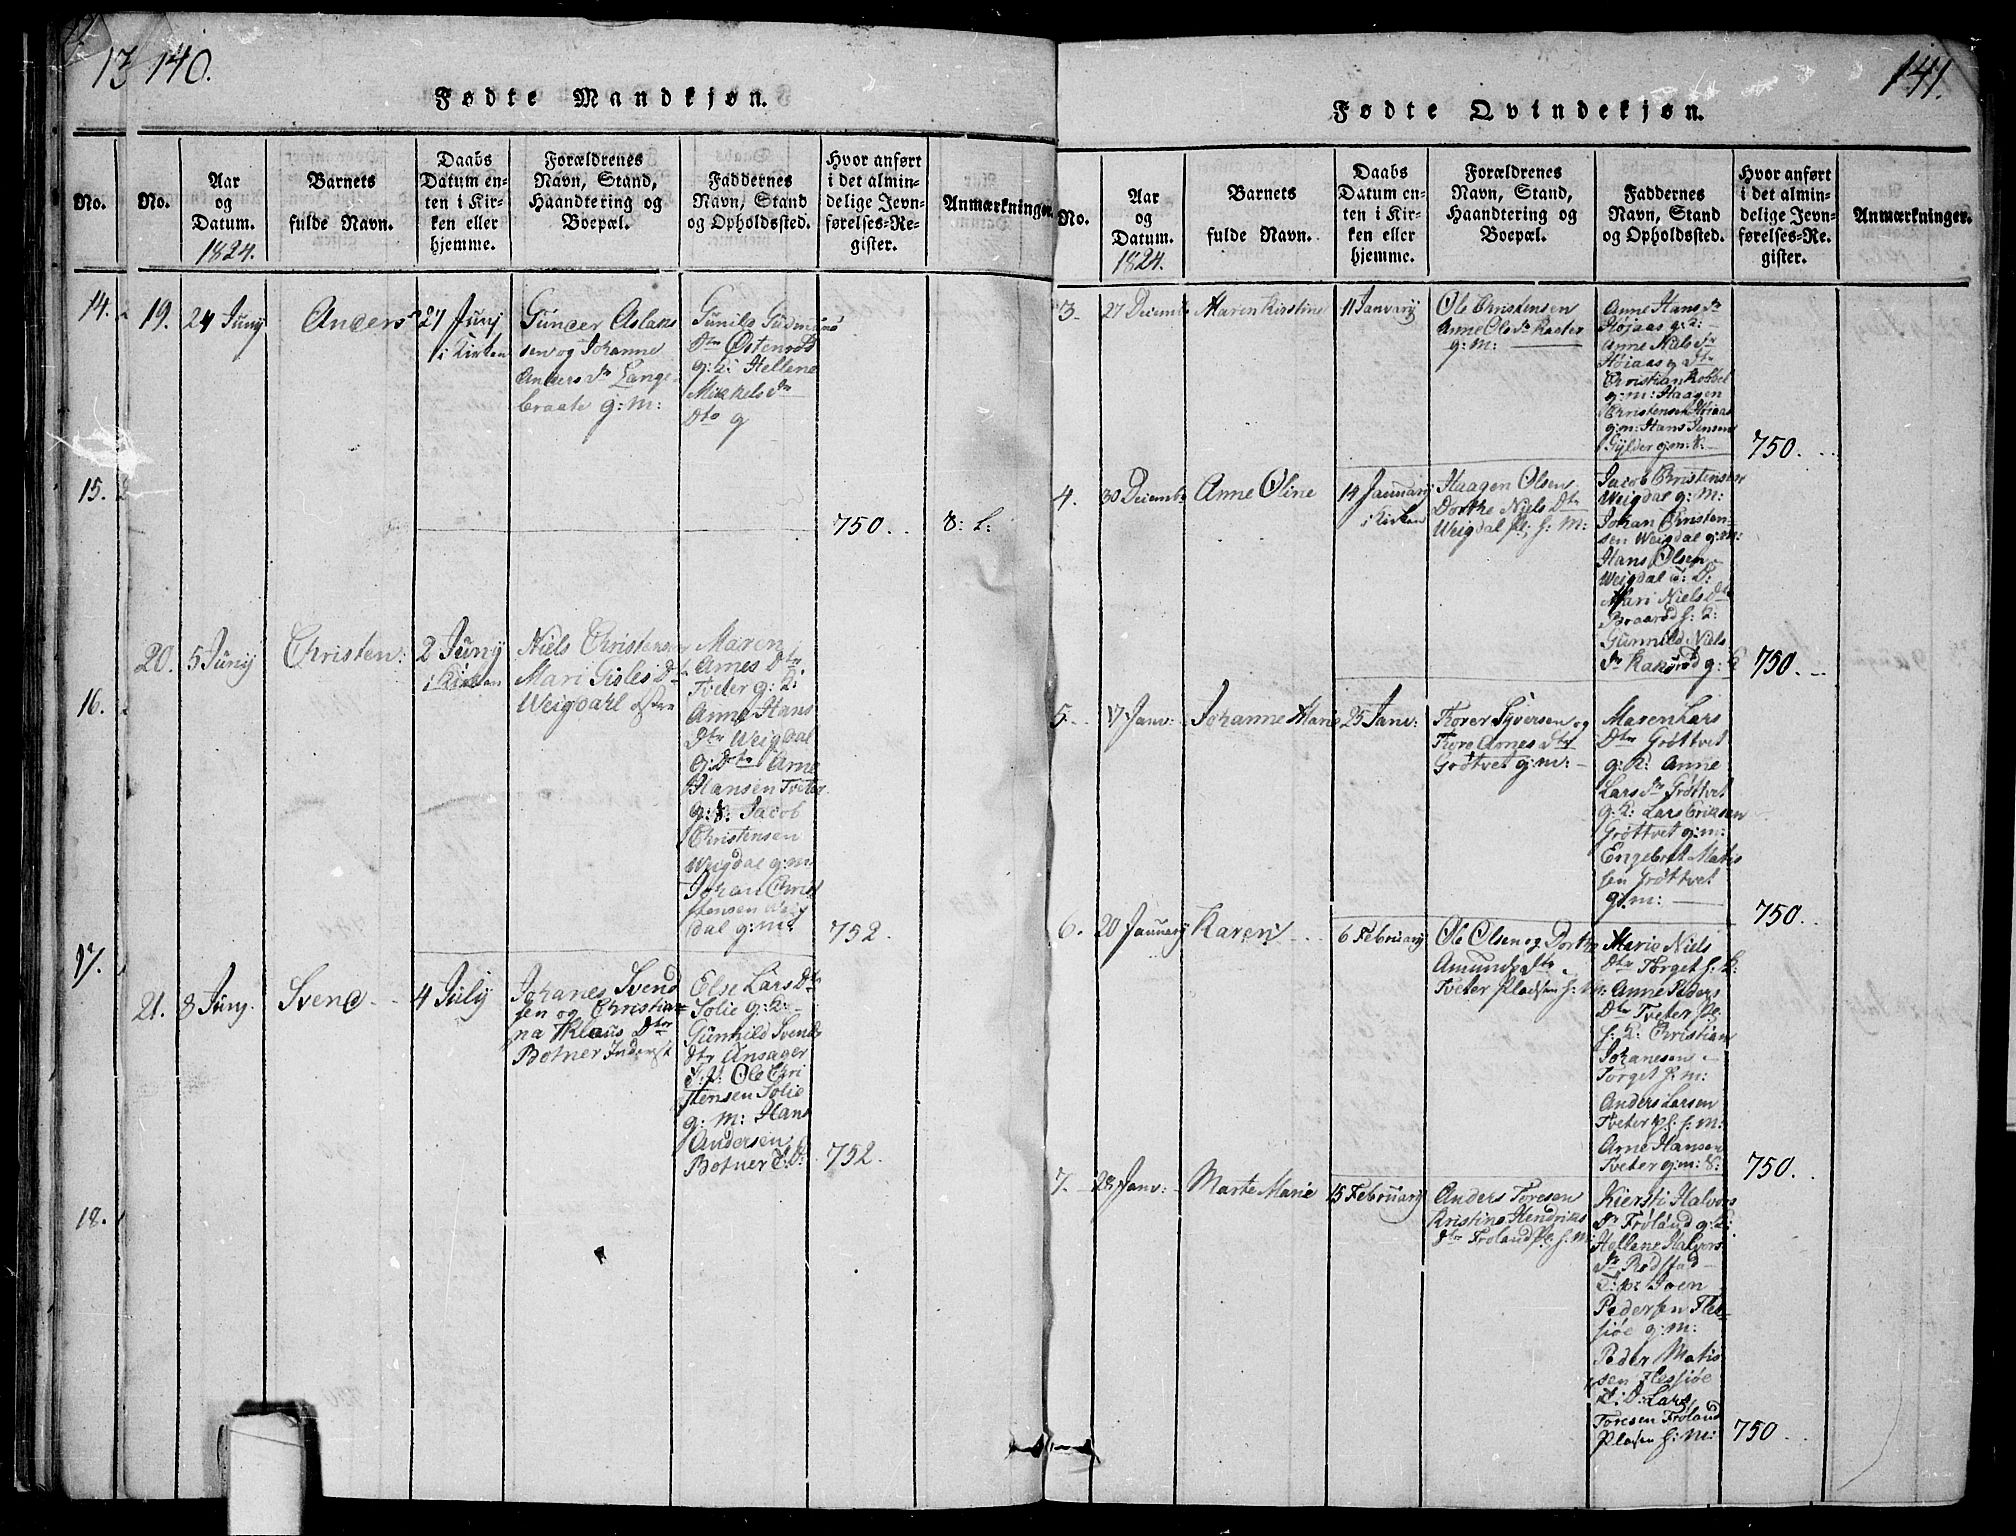 13 140.
Fødte Mandkjøn.
No.
No.
Aar
og
Datum.
1824.
Barnets
fulde Navn.
Daabs
Datum en-
ten i Kir-
ken eller
hjemme.
Forældrenes
Navn, Stand,
Haandtering og
Boepæl.
Faddernes
Navn, Stand
og Opholdssted.
Hvor anført
i det almin-
delige Jevn-
førelses-Re-
gister.
Anmærkninger.
14.
15.
16.
17.
18.
19.
24 Juny
Anders
27 Junj
i Kirken
Gunder Aslak
sen og Johanne
Anders Dr Lange
braate g: M:
Gunild Gudm
Dtr Østenrød
g: K: Hellene
Mikkels dr
Dto g
750.
8: L:
20.
5 Junij
Christen:
2 Juny
i Kirken
Niels Christensen
Mari Gisles Dr
Weigdahl
Maren
Arnes Dtr
Tveter g: K:
Anne Hans
Dtr Weigdal
g: Dto Arne
Hansen Tveter
g: K: Jacob
Christensen
Weigdal g: m
Johan Chri
stensen Weig
dal g: m:
752
21.
8 Juny.
Svend
4 July
Johanes Svend
sen og Christia
na Klaus Dtr
Botner
Else Lars Dtr
Solie g: K:
Gunhild Svends
dtr Ansager
Ole Chri
stensen Solie
g: M: Hans
Andersen
Botner
752.
141.
Fødte Qvindekjøn.
No.
Aar
og
Datum.
1824.
Barnets
fulde Navn.
Daabs
Datum en-
ten i Kir-
ken eller
hjemme.
Forældrenes
Navn, Stand,
Haandtering og
Boepæl.
Faddernes
Navn, Stand
og Opholdssted.
Hvor anført
i det almin-
delige Jevn-
førelses-Re-
gister.
Anmærkninger.
3.
27 Decembr
Maren Kirstine
11 January
Ole Christensen
Anne Ols dr
g: M:
Anne Hans dr
Højaas g: K:
Anne Niels dr
Højaas g Dto
Christian Kobbel
g: m: Haagen
Christensen Højaas
g: m: Hans Jensen
Gylder g: m: K:
750.
4.
30 Decembr
Anne Oline
14 January
i Kirken
Haagen Olsen
Dorthe Niels Dtr
Weigdal pl: h: M:
Jacob Christensen
Weigdal g: M:
Johan Christen-
sen Weigdal g: m:
Hans Olsen
Weigdal
Mari Niels Dtr
Braarød h: K:
Gunnild Niels
dr g: K
750.
5.
17 Janv:
Johanne Marie
25 Janv:
Thorer Syversen og
Thore Arnes Dtr
Grøtvet g: m:
Maren Lars
Dtr Grøttvet
g: K: Anne
Lars dr Grøttvet
g: K: Lars Eriksen
Grøttvet g: m:
Engebret Matis
sen Grøttvet
g: m:
750.
6.
20 January
Karen
6 February
Ole Olsen og Dorthe
Amunds Dtr
Tveter Pladsen h: M:
Marie Niels
Dtr Torget h: K:
Anne Peders
Dtr Tveter pl
h: K: Christian
Johanesen
Torget h: m:
Anders Larsen
Tveter pl: h: m:
Arne Hansen
Tveter g: m: K:
750.
7.
28 Janv:
Marte Marie
15 February
Anders Toresen
Kristine Hendriks
dtr Frøland Pl: h: M:
Kiersti Halvors
dr Frøland g: K:
Hellene Halvors
dr Rødstad
Joen
Pedersen Fles
siøe g: M:
Peder Matis
sen Flessiøe
Lars
Toresen Frøland
Pladsen h: M:
750.